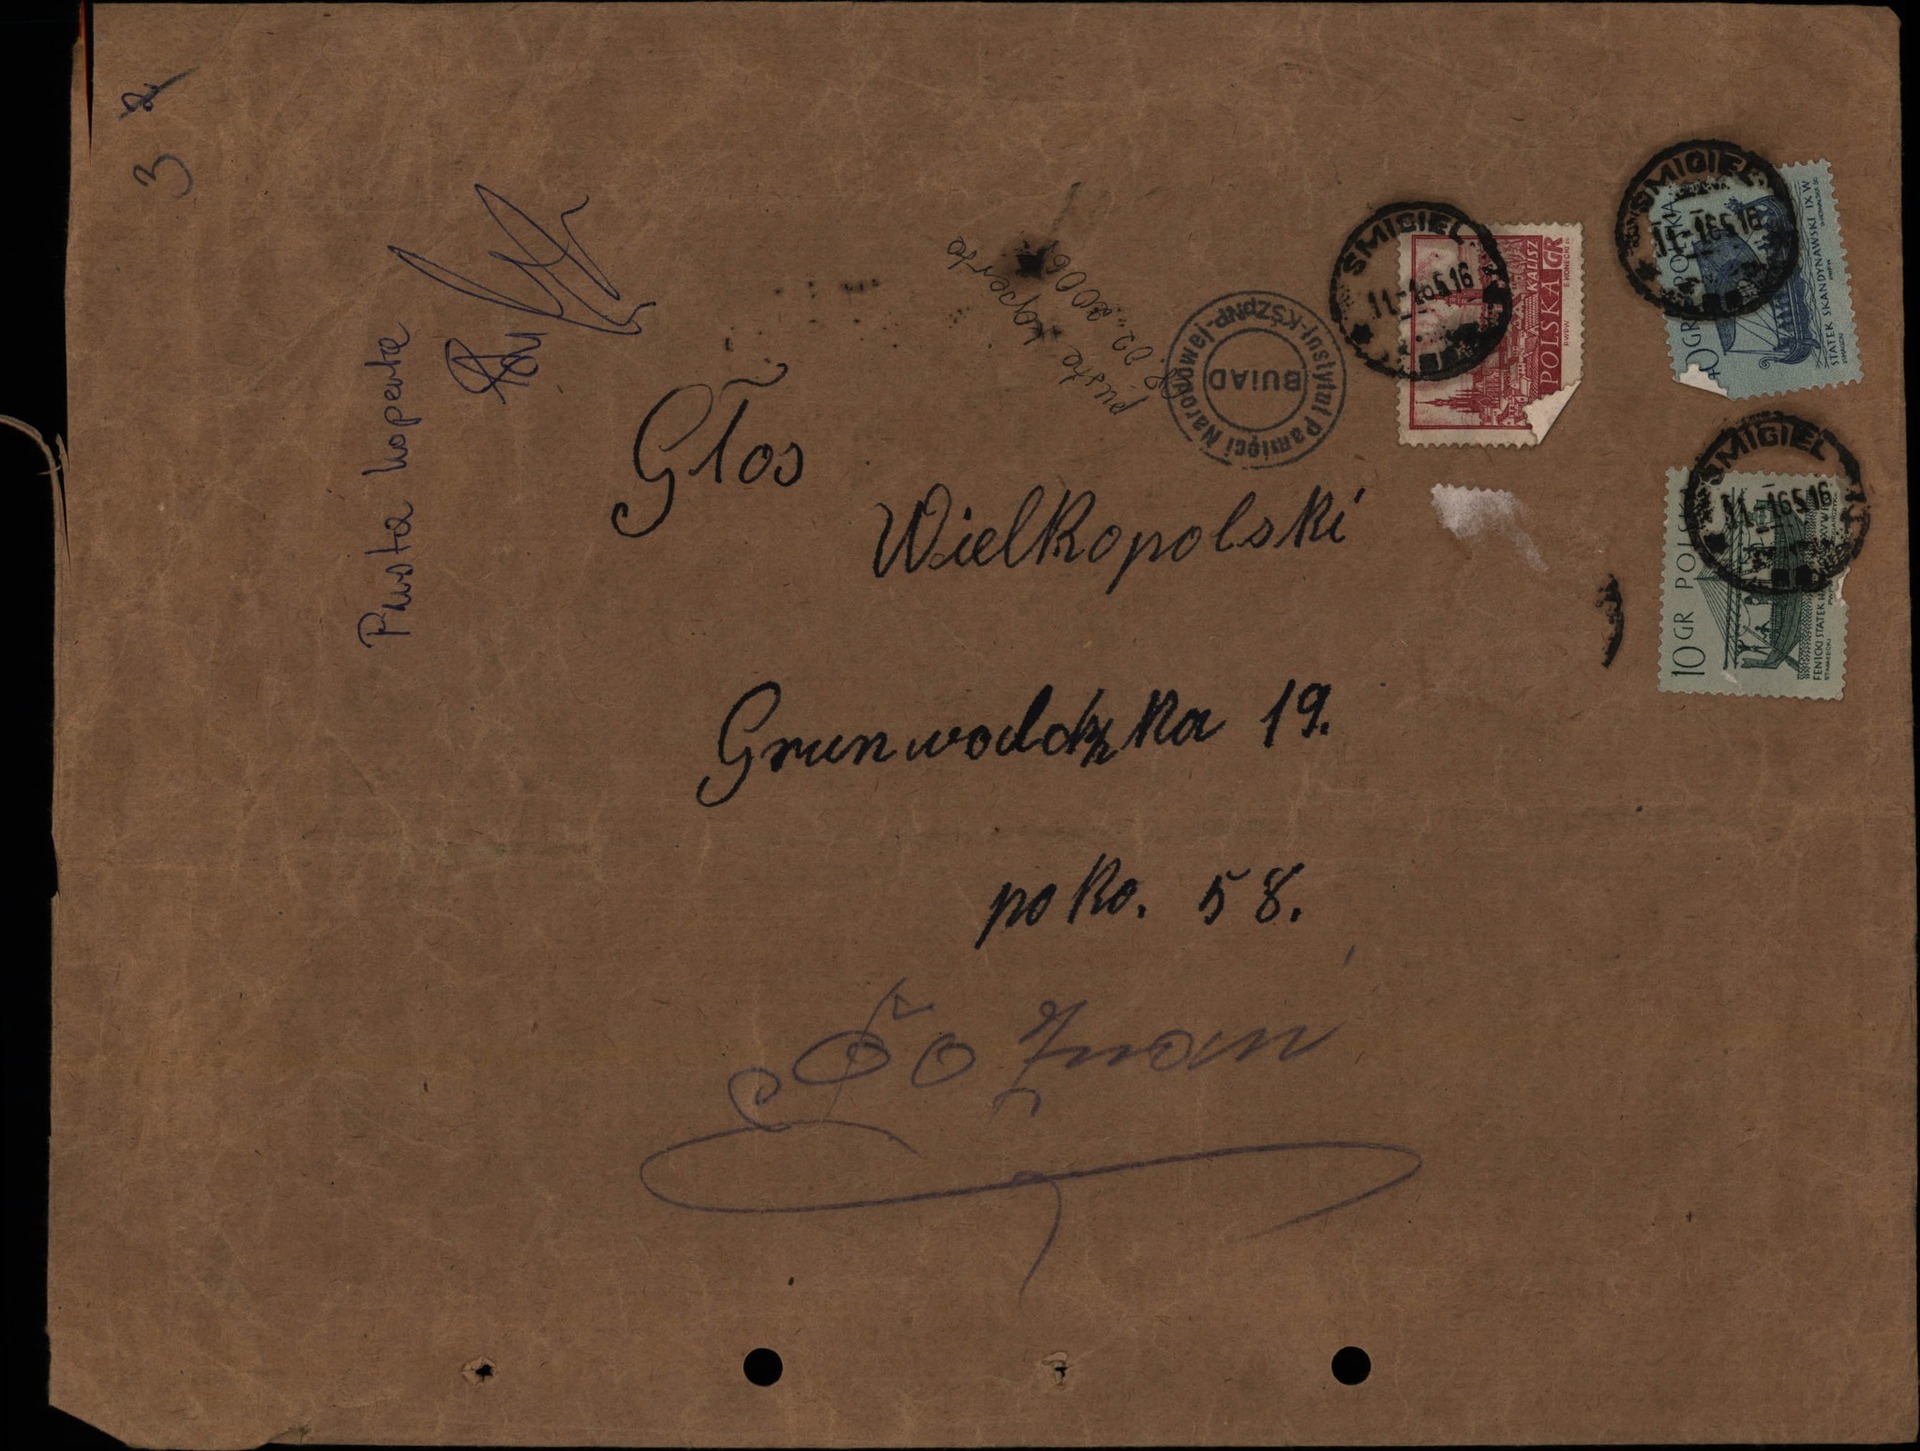 3
Pusta koperta
pusta koperta
Instytut Pamięci Narodowej-KŚZpNP-
BUIAD
ŚMIGIEL
11-165.16
POLSKA GR
KALISZ
ŚMIGIEL
11-165.16
GR POLSKA
STATEK SKANDYNAWSKI IX W
ŚMIGIEL
11-165.16
10 GR POLSKA
FENICKI STATEK
Głos
Wielkopolski
Grunwaldzka 19.
poko. 58.
Poznań